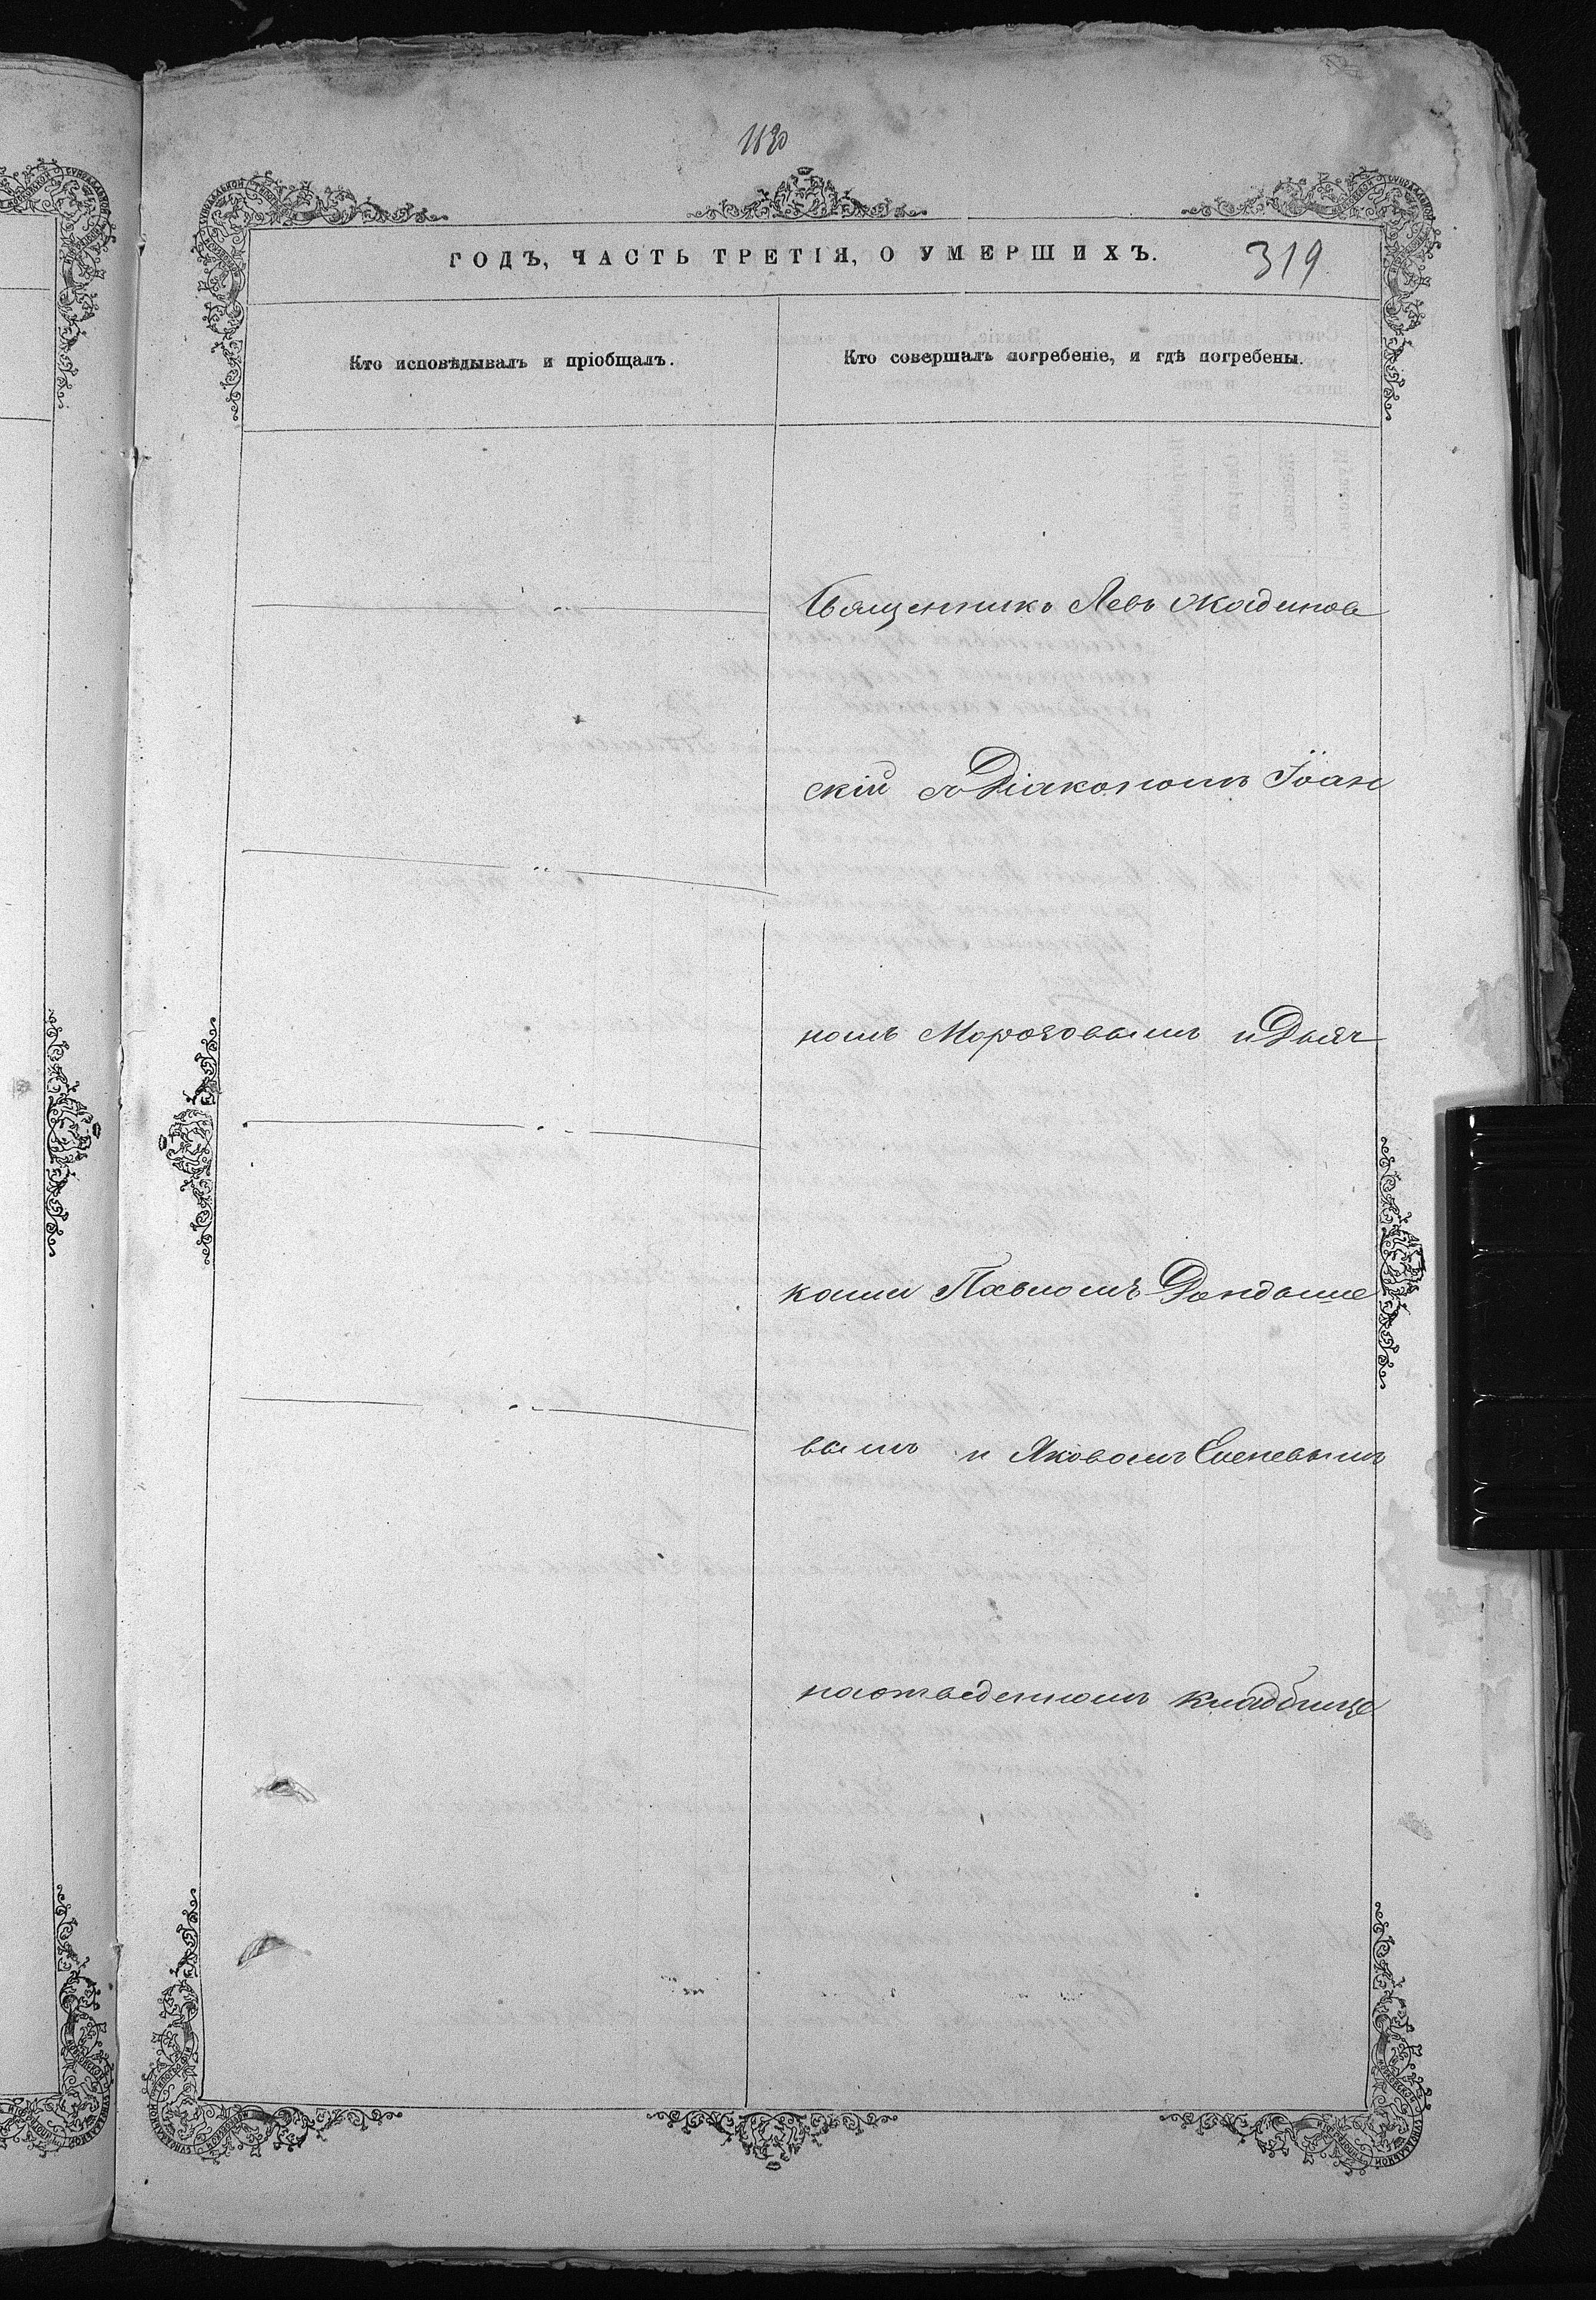 1130
ГОДЪ, ЧАСТЬ ТРЕТІЯ, О УМЕРШИХЪ.
319
Кто исповѣдывалъ и пріобщалъ.
Кто совершалъ погребеніе, и гдѣ погребены.
Священникъ Левъ
скій съ Діакономъ Іоан
номъ Морозовымъ и Дьяч
ками Павломъ
вымъ и Яковомъ
на отведенномъ кладбище